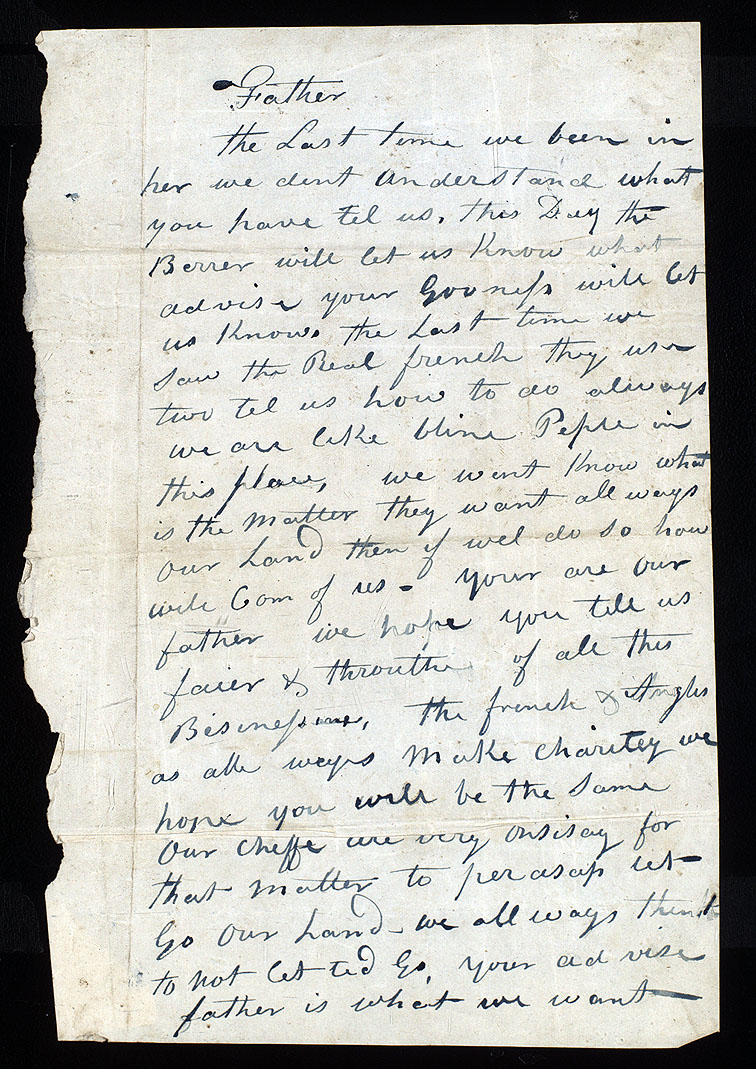 Father
the Last time we been in
her we dont understand what
you have tel us, this Day the
Berrer will let us Know what
advise your Gooness will let
us Know. the Last time we
saw the Real french they use
two tel us how to do always
we are like bline Peple in
this place, we want Know what
is the Matter they want all ways
our Land then if wel do so how
will Com of us - your are our
father we hope you tell us
faier & throuthe of all this
Besiness, the french & Angles
as alle ways Make charitey we
hope you will be the same
Our Cheffe are very onsisay for
that Matter to per asap let
Go Our Land - we all ways think
to not let ted Go, your ad vise
father is what we want